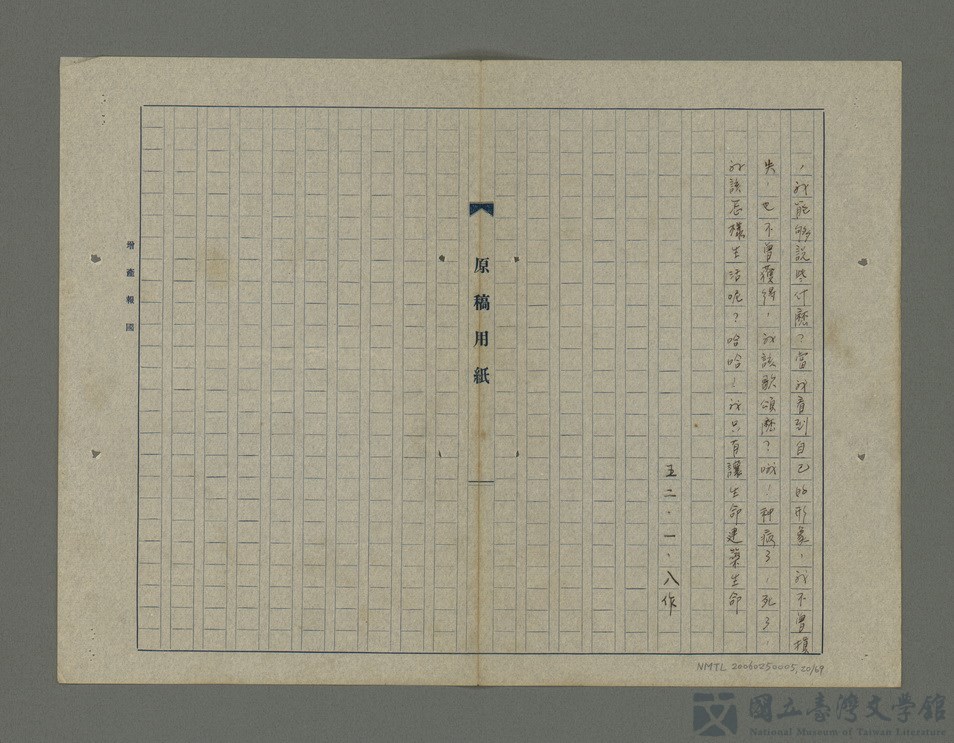 ，我能夠說些什麽？當我看到自己的形象，我不曾損
失，也不曾獲得，我該歌頌麽？哦！神病了，死了，
我該怎樣生活呢？哈哈！我只有讓生命建築生命
五二·一·八作
原稿用紙
增產報國
NMTL 20060250005, 20/69
國立臺灣文學館
National Museum of Taiwan Literature